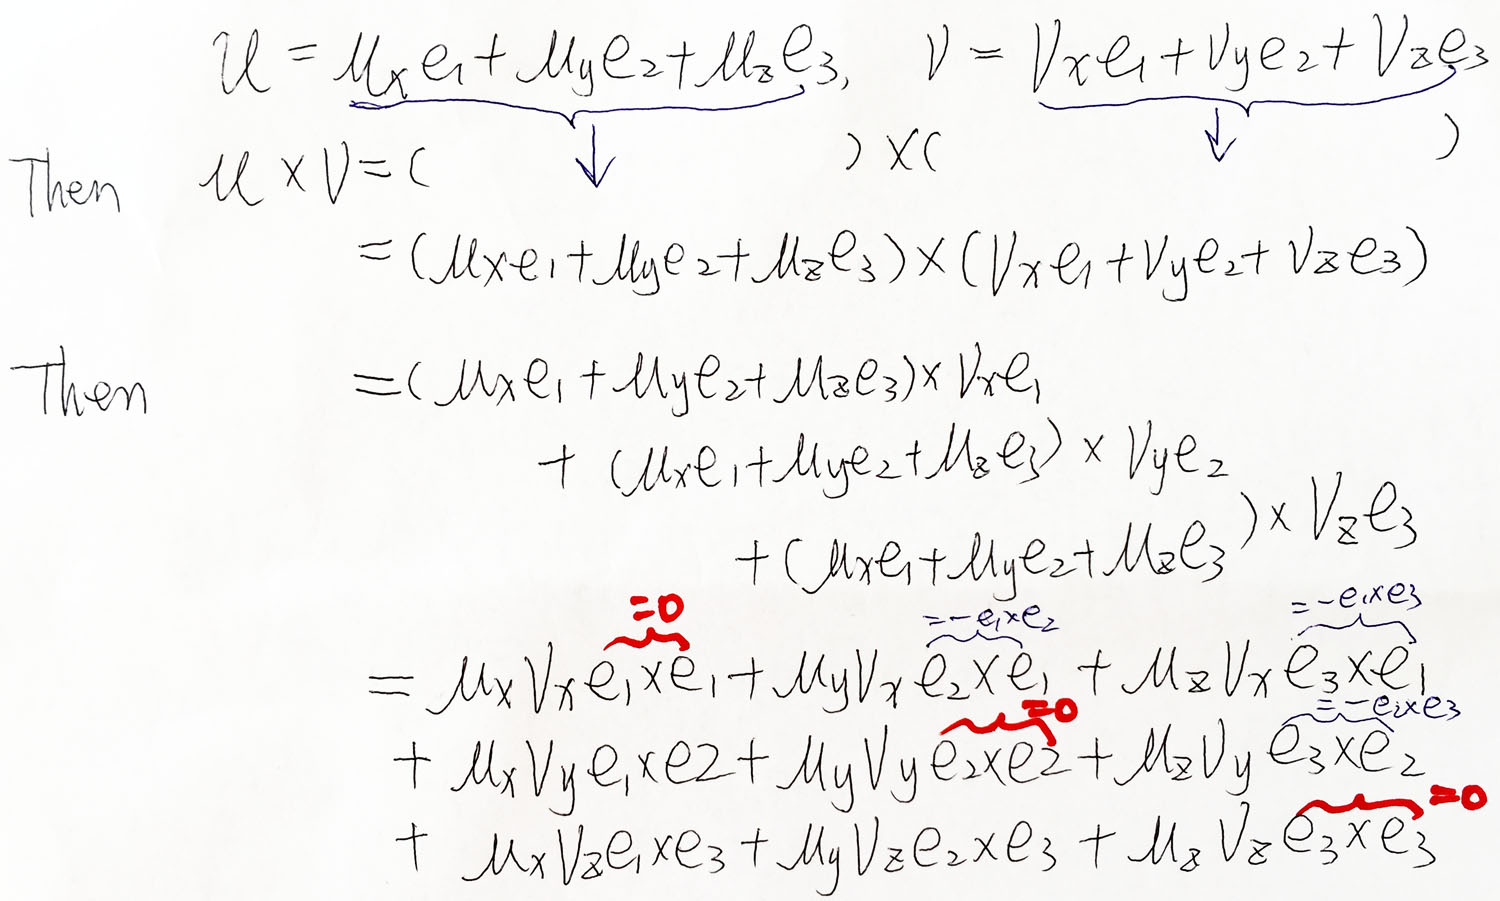 u = uₓe₁ + u_y e₂ + u_z e₃, V = Vₓe₁ + V_y e₂ + V_z e₃
Then u × V = ( ) × ( )
= (uₓe₁ + u_y e₂ + u_z e₃) × (Vₓe₁ + V_y e₂ + V_z e₃)
Then = (uₓe₁ + u_y e₂ + u_z e₃) × Vₓe₁
+ (uₓe₁ + u_y e₂ + u_z e₃) × V_y e₂
+ (uₓe₁ + u_y e₂ + u_z e₃) × V_z e₃
=0 = -e₁×e₂ = -e₁×e₃
= uₓVₓe₁×e₁ + u_yVₓe₂×e₁ + u_zVₓe₃×e₁
=0 = -e₂×e₃
+ uₓV_y e₁×e2 + u_yV_y e₂×e2 + u_zV_y e₃×e₂
=0
+ uₓV_z e₁×e₃ + u_yV_z e₂×e₃ + u_zV_z e₃×e₃